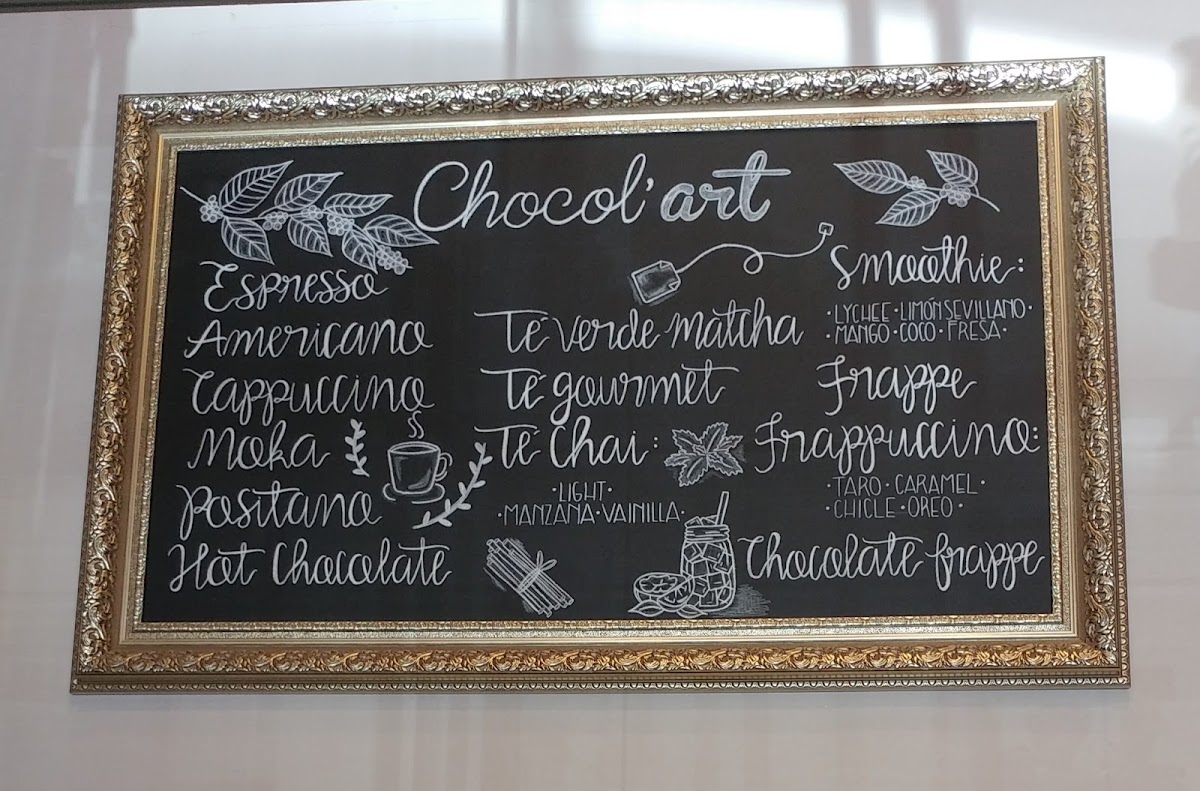 Chocol'art
Espresso
Americano
Cappuccino
Moka
Positano
Hot Chocolate
Té verde matcha
Té gourmet
Té Chai:
·LIGHT·
·MANZANA·VAINILLA·
Smoothie:
·LYCHEE·LIMÓN SEVILLANO·
MANGO·COCO·FRESA·
Frappe
Frappuccino:
·TARO·CARAMEL·
CHICLE·OREO·
Chocolate frappe